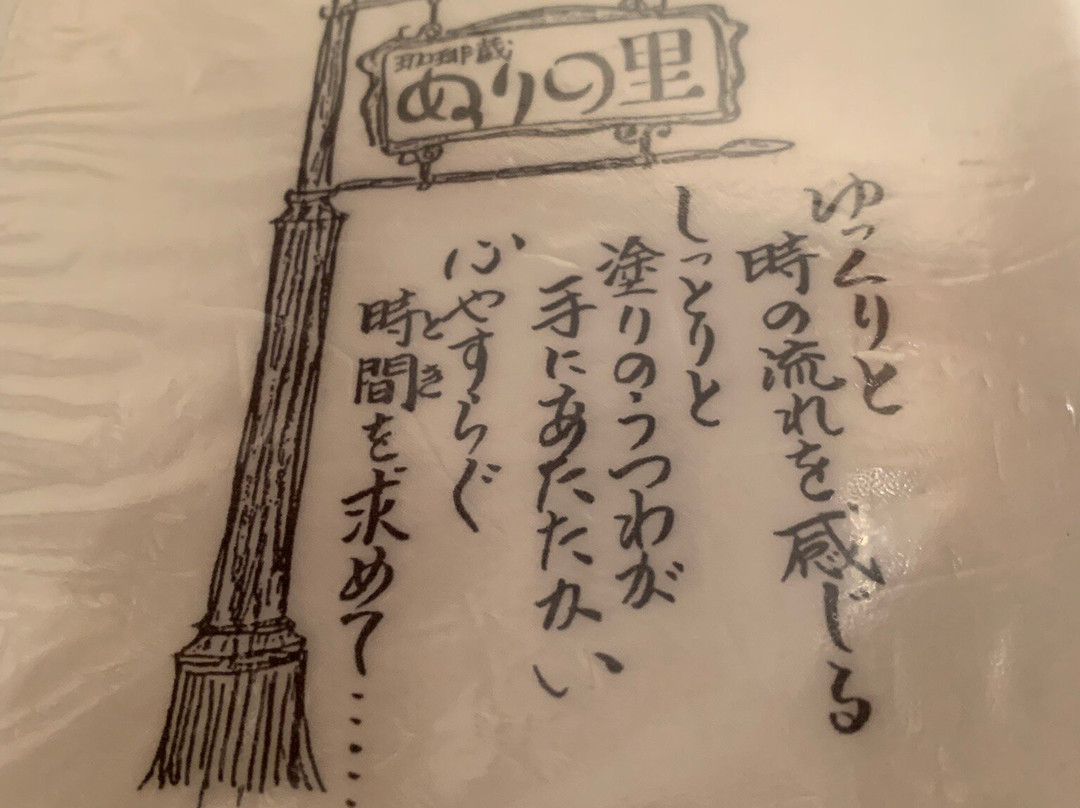 珈琲蔵
ぬりの里
ゆっくりと
時の流れを感じる
しっとりと
塗りのうつわが
手にあたたかい
心やすらぐ
時間を求めて……
とき